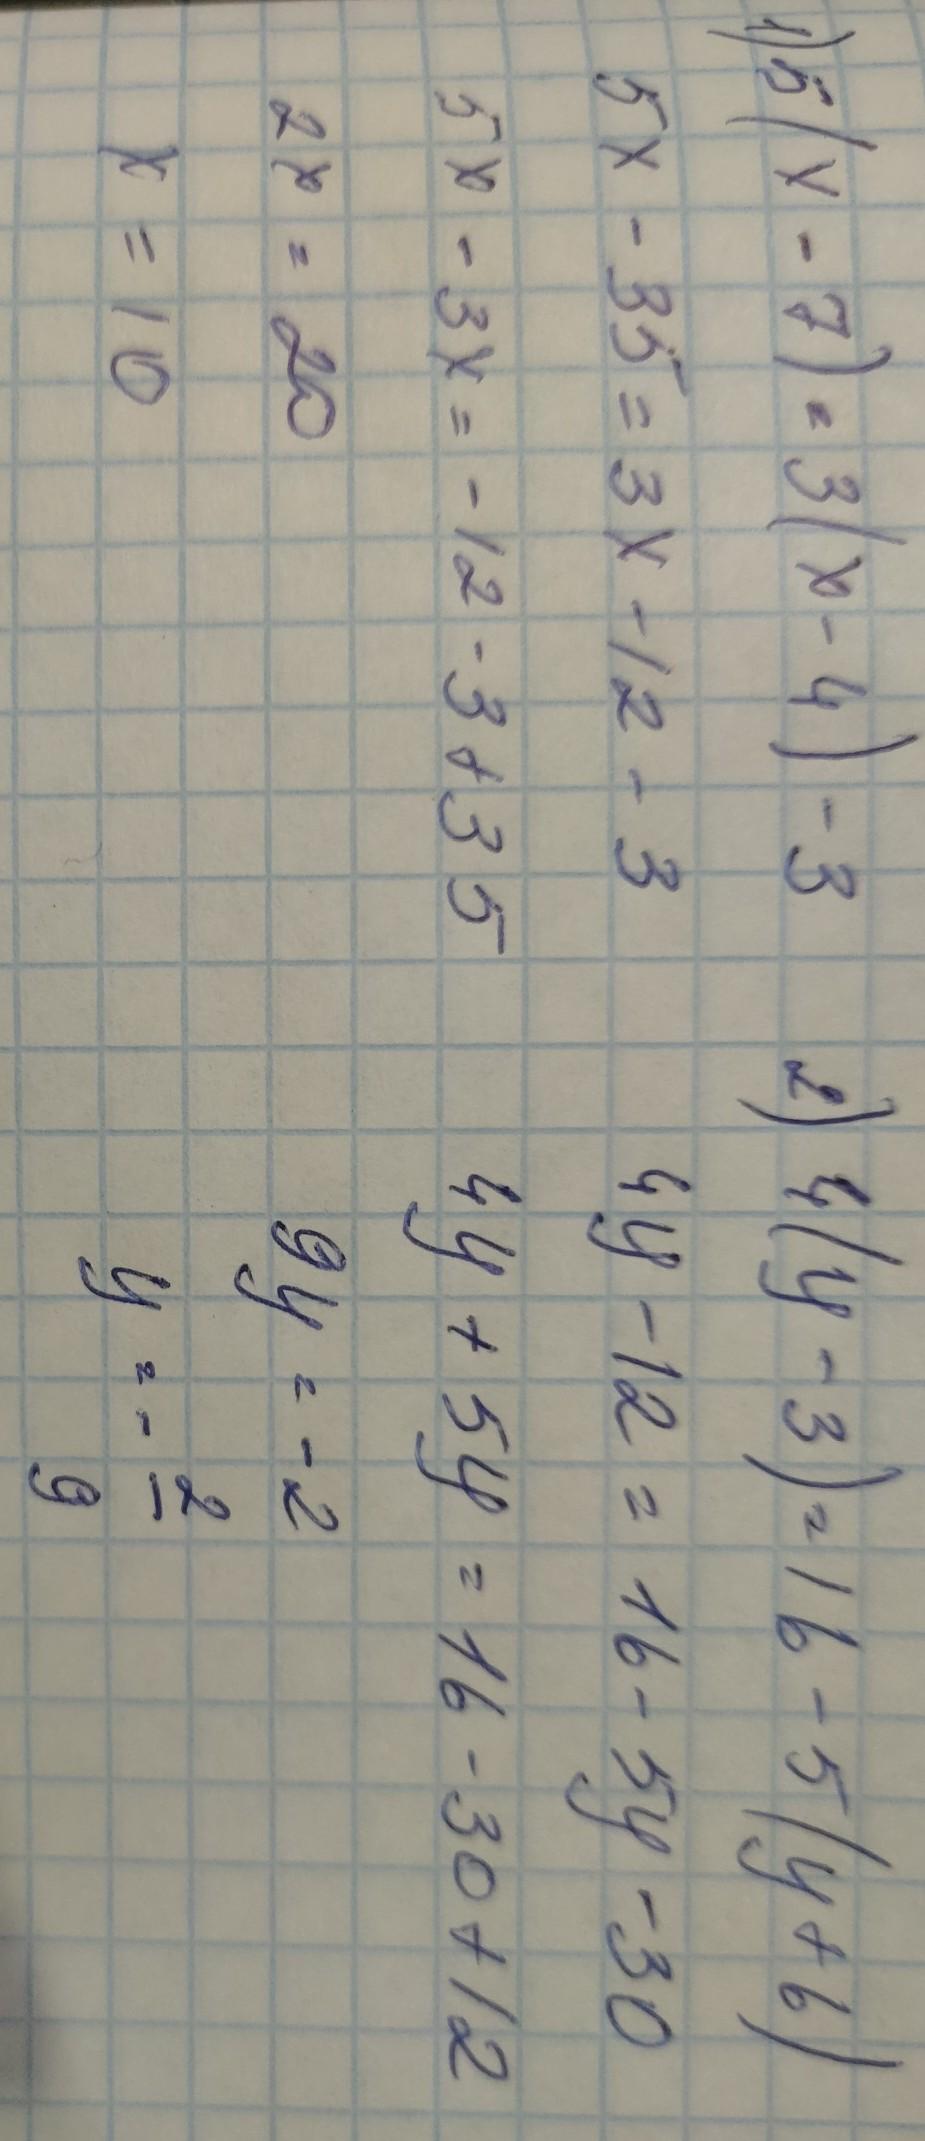 1) 5(x - 7) = 3(x - 4) - 3
5x - 35 = 3x - 12 - 3
5x - 3x = -12 - 3 + 35
2x = 20
x = 10
2) 4(y - 3) = 16 - 5(y + 6)
4y - 12 = 16 - 5y - 30
4y + 5y = 16 - 30 + 12
9y = -2
y = - 2/9